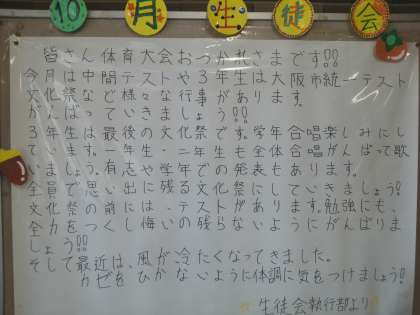 10月生徒会
皆さん体育大会おつかれさまです!!
今月は中間テストや3年生は大阪市統一テスト
文化祭など様々な行事があります。
がんばっていきましょう!!
3年生は最後の文化祭です。学年合唱楽しみにし
ています。一年生・二年生も全体合唱がんばって歌
いましょう。有志や学年での発表もあります。
全員で思い出に残る文化祭にしていきましょう!
文化祭の前には、テストがあります。勉強にも、
全力をつくし悔いの残らないようにがんばりま
しょう!!
そして最近は、風が、冷たくなってきました。
カゼをひかないように体調に気をつけましょう!
生徒会執行部より